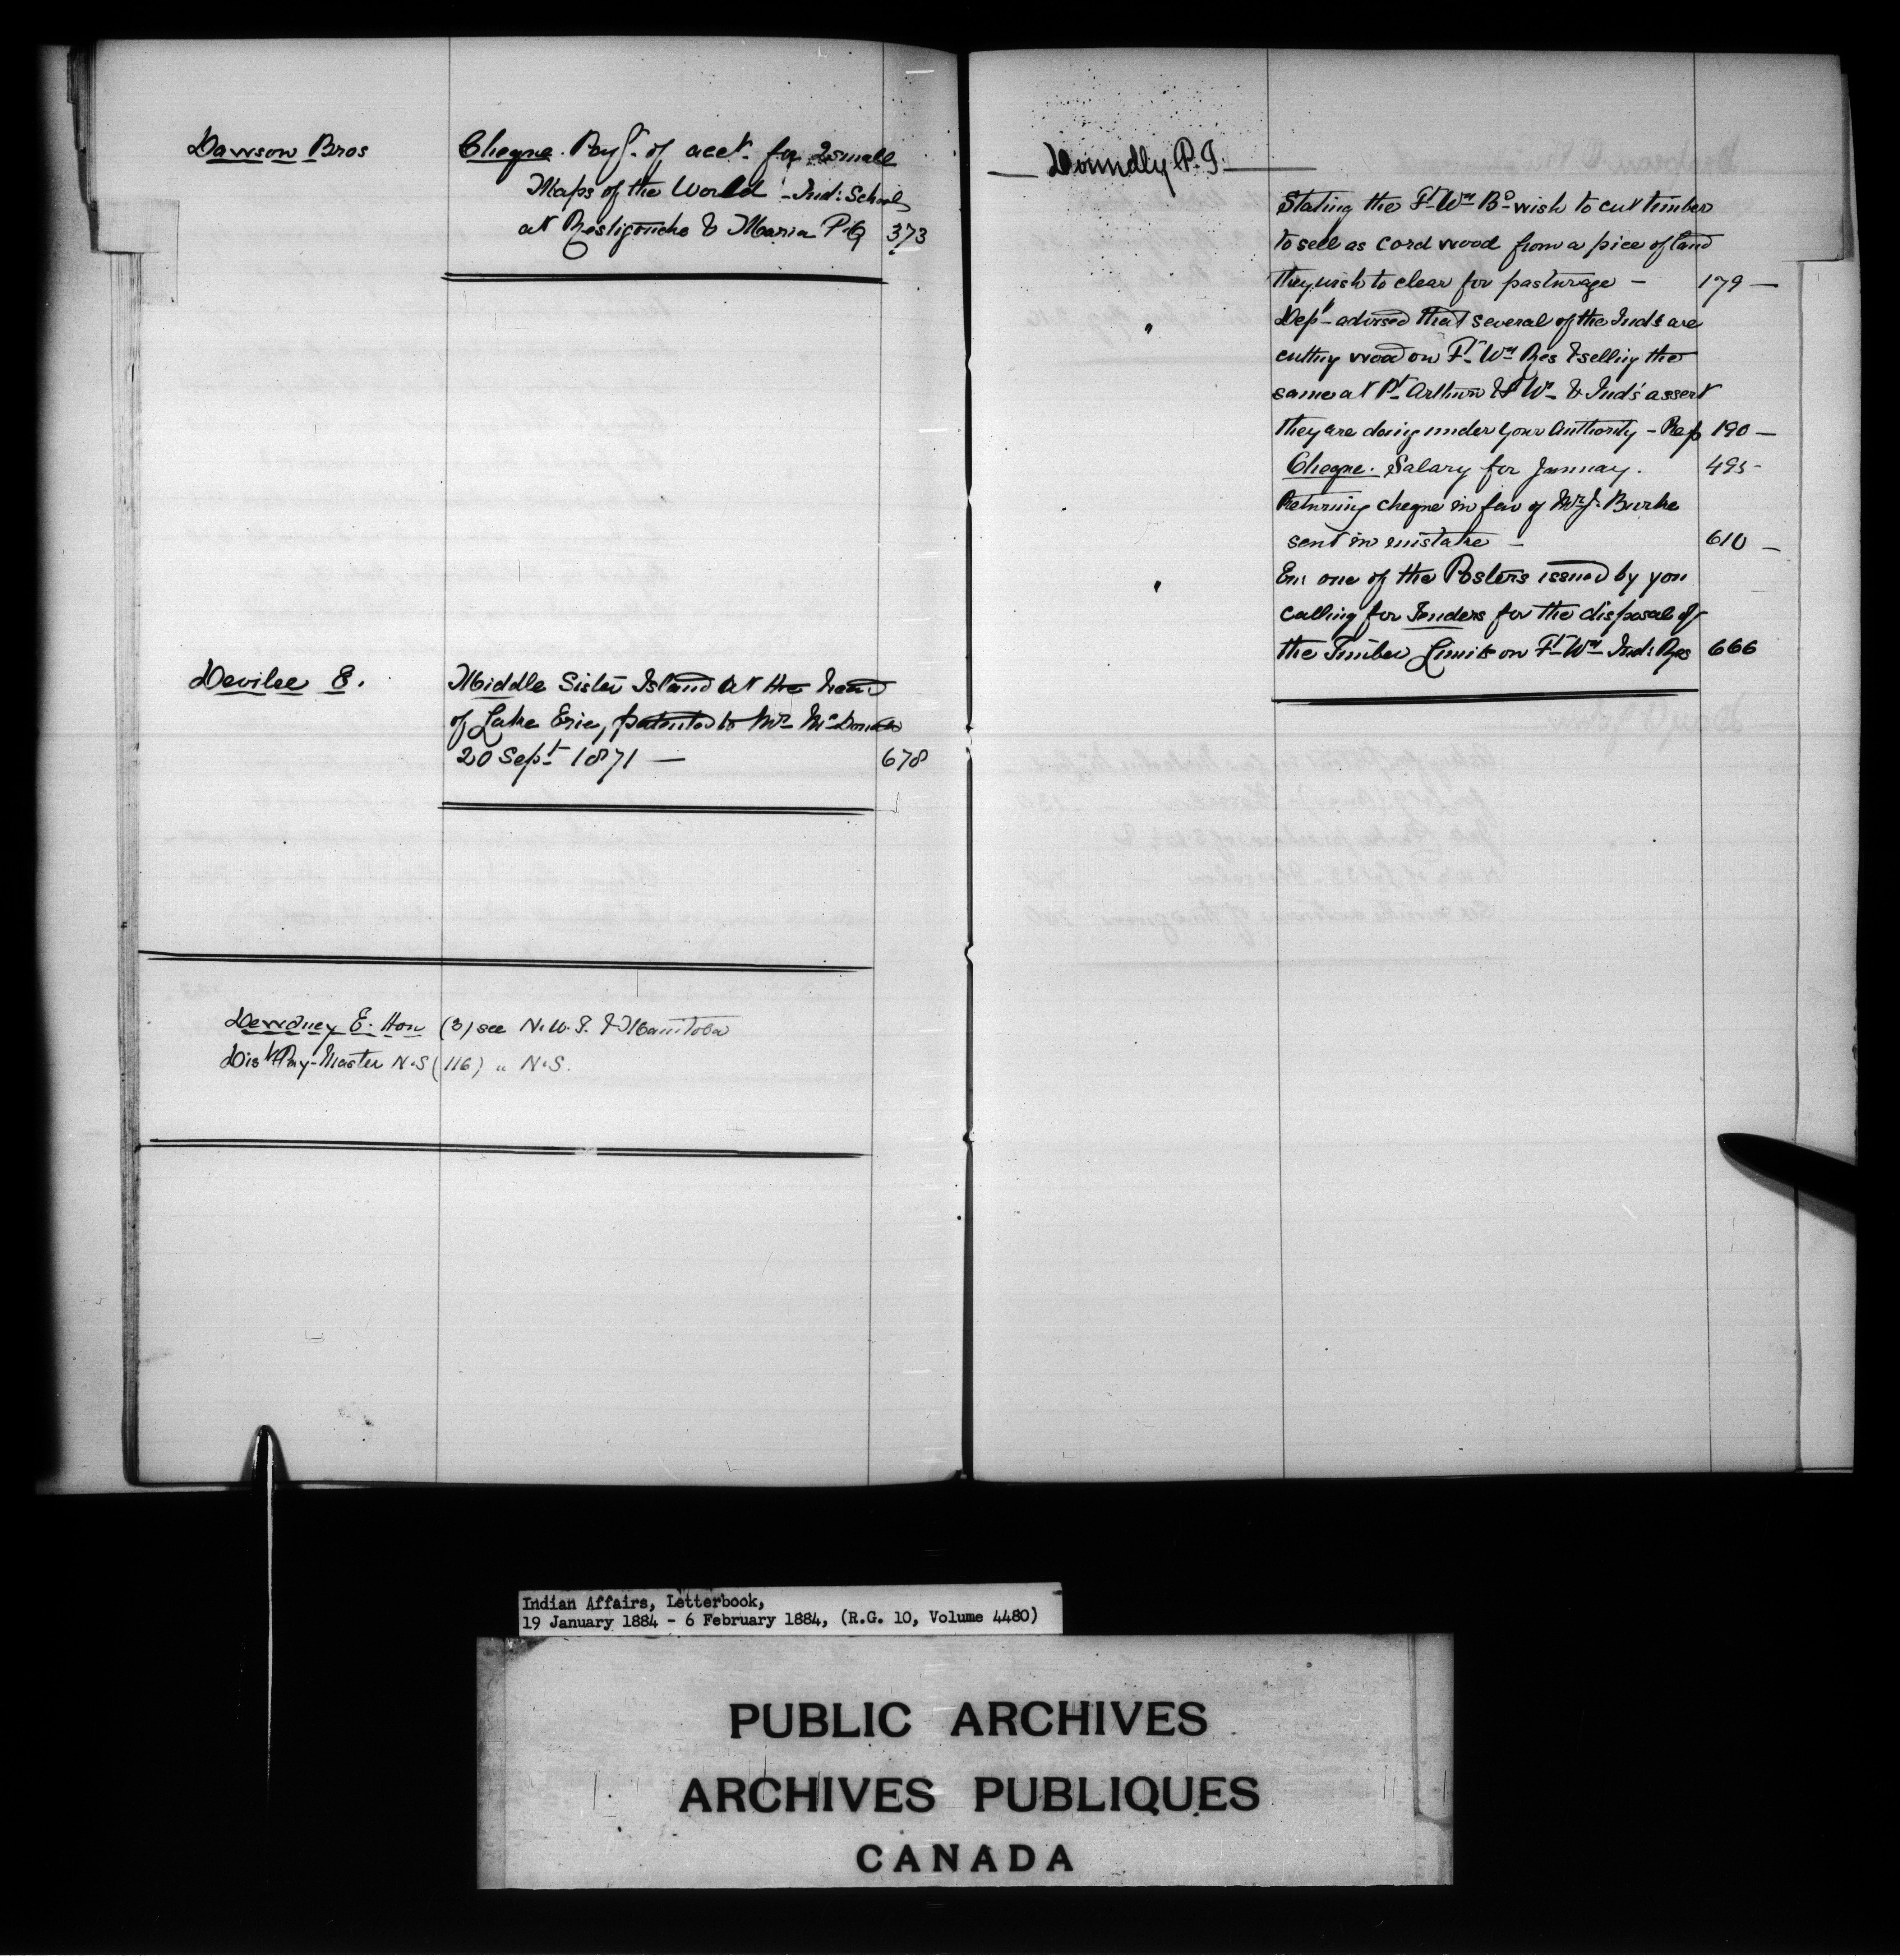 Dawson Bros
Cheque. Payt. of acct. for 2 small
Maps of the World - Ind: Schools
at Restigouche & Maria P.Q 373
Deville E.
Middle Sister Island at the head
of Lake Erie, patented to Mr McDonald
20 Sept 1871 — 678
Dewdney E. Hon (3) see N.W.T. & Manitoba
Dist Pay-Master N.S (116) " N.S.
Donndly P.J.
Stating the Ft Wm Bd wish to cut timber
to sell as cord wood from a piece of land
they wish to clear for pasturage — 179 —
Dept advised that several of the Inds are
cutting wood on Ft Wm Res & selling the
same at Pt Arthur & Ft Wm & Ind's assert
they are doing under your Authority - Rep 190 —
Cheque. Salary for January. 495 -
Returning cheque in fav of Mr J. Burke
sent in mistake — 610 —
Enc one of the Posters issued by you
calling for Tenders for the disposal of
the Timber Limits on Ft Wm Ind: Res 666
Indian Affairs, Letterbook,
19 January 1884 - 6 February 1884, (R.G. 10, Volume 4480)
PUBLIC ARCHIVES
ARCHIVES PUBLIQUES
CANADA